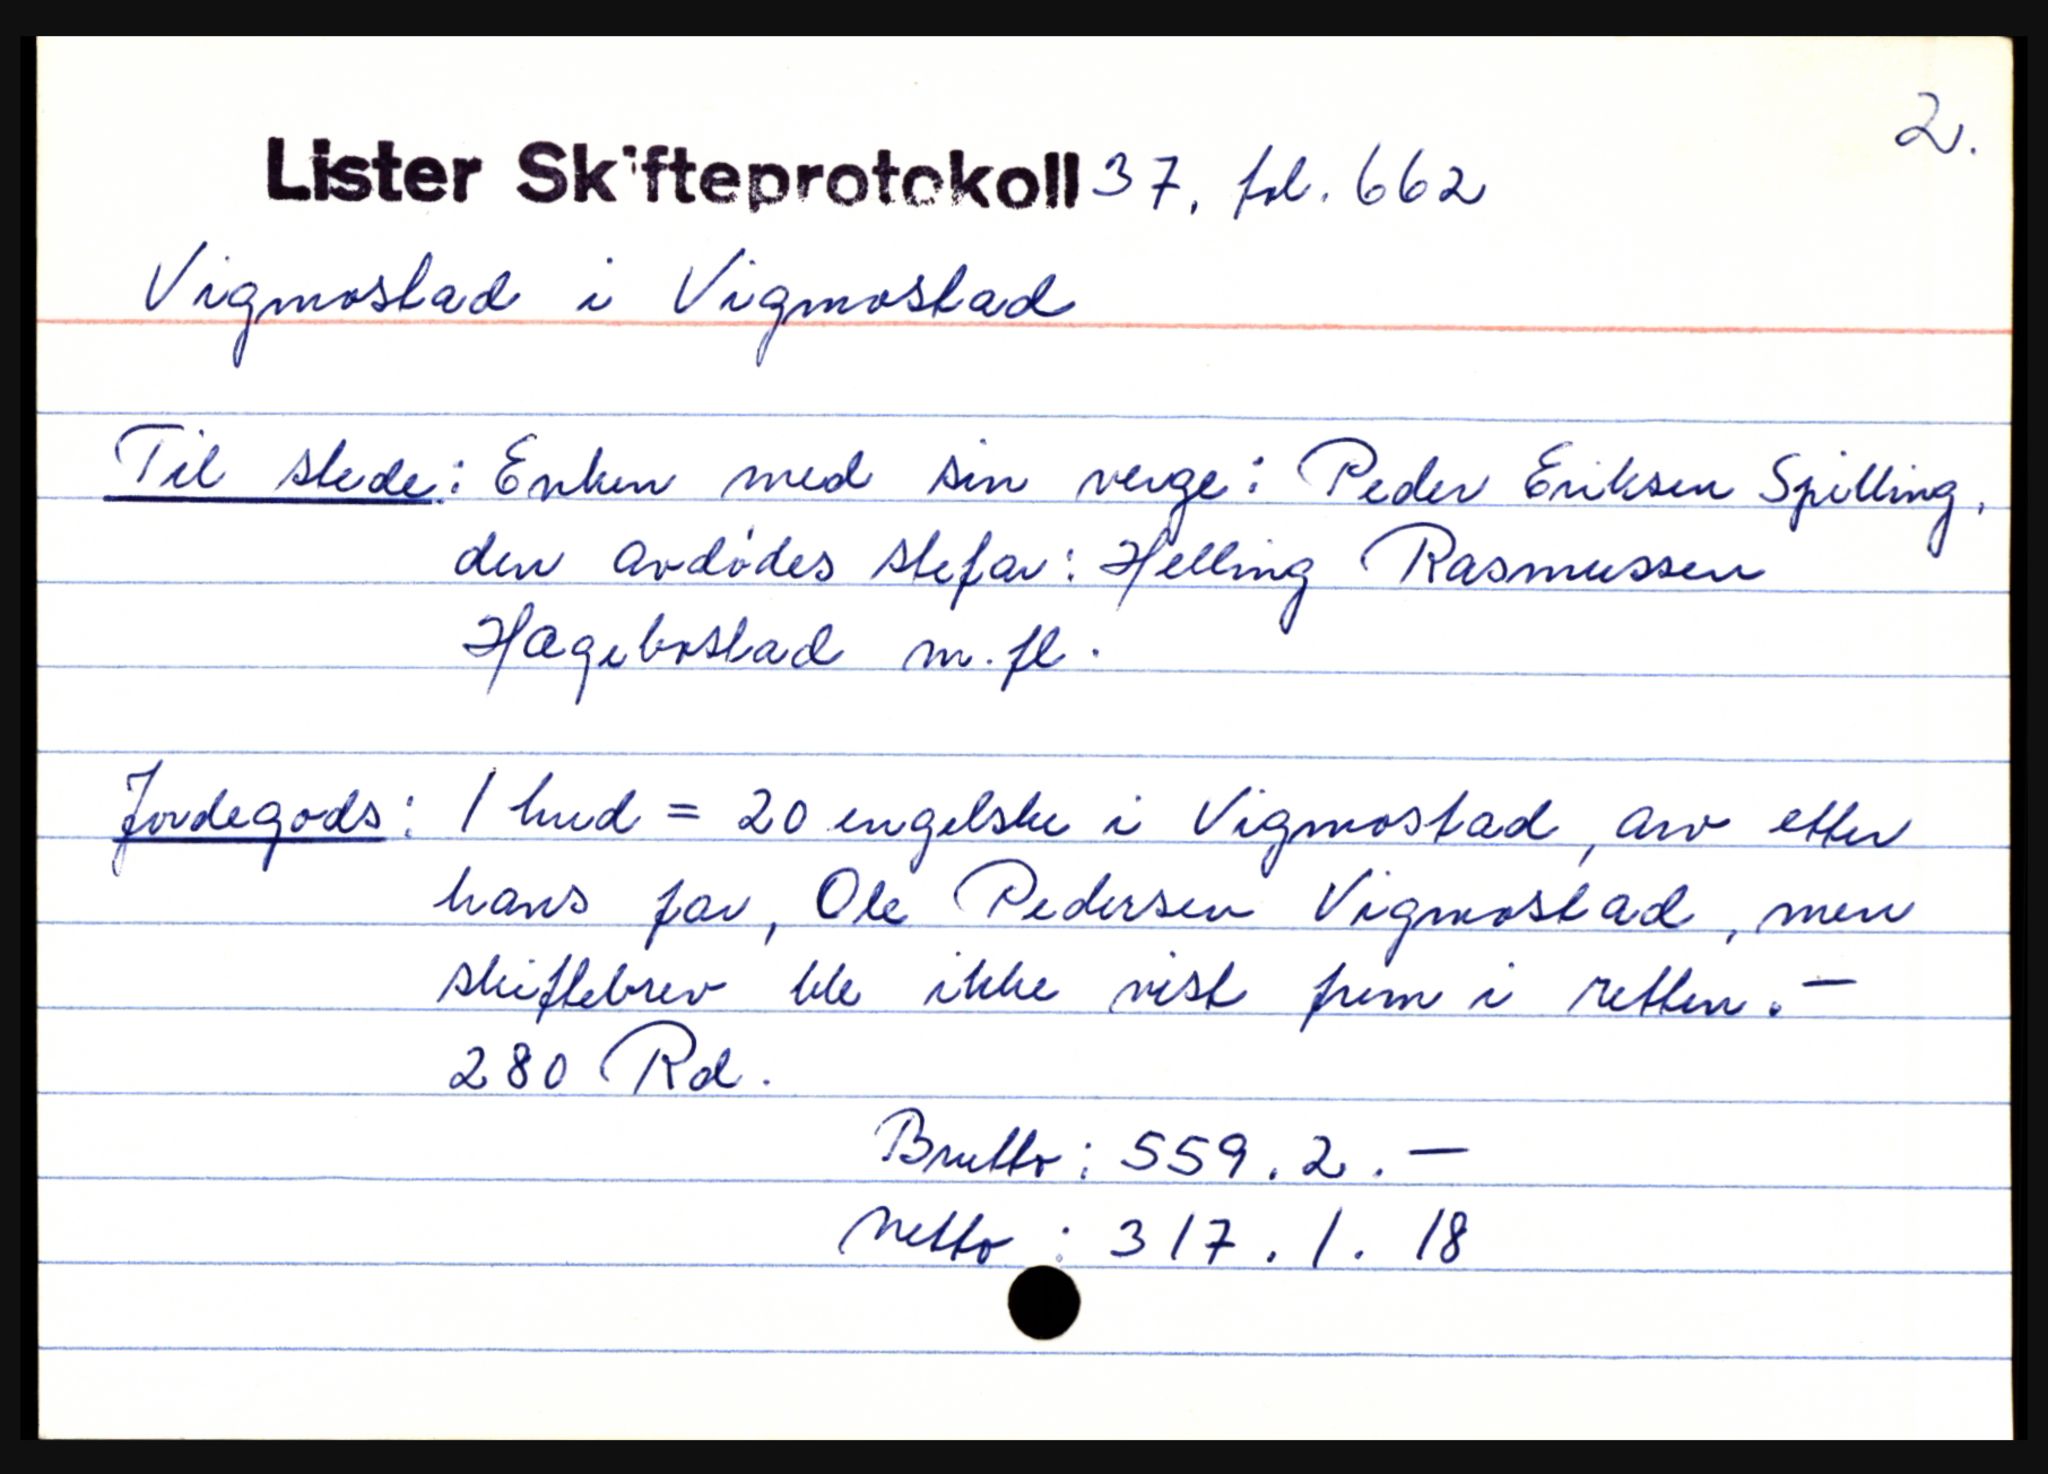 2.
Lister Skifteprotokoll 37, fol. 662
Vigmostad i Vigmostad
Til stede: Enken med sin verge: Peder Eriksen Spilling,
den avdødes stefar: Helling Rasmussen
Hægebostad m.fl.
Jordegods: 1 hud = 20 engelske i Vigmostad, arv etter
hans far, Ole Pedersen Vigmostad, men
skiftebrev ble ikke vist frem i retten. —
280 Rd.
Brutto: 559. 2. —
Netto : 317. 1. 18